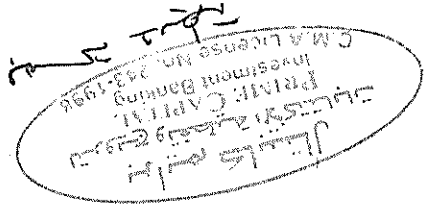 برايم كابيتال
ترويج وتغطية الاكتتاب
PRIME CAPITAL
Investment Banking
C.M.A License No. 243-1998